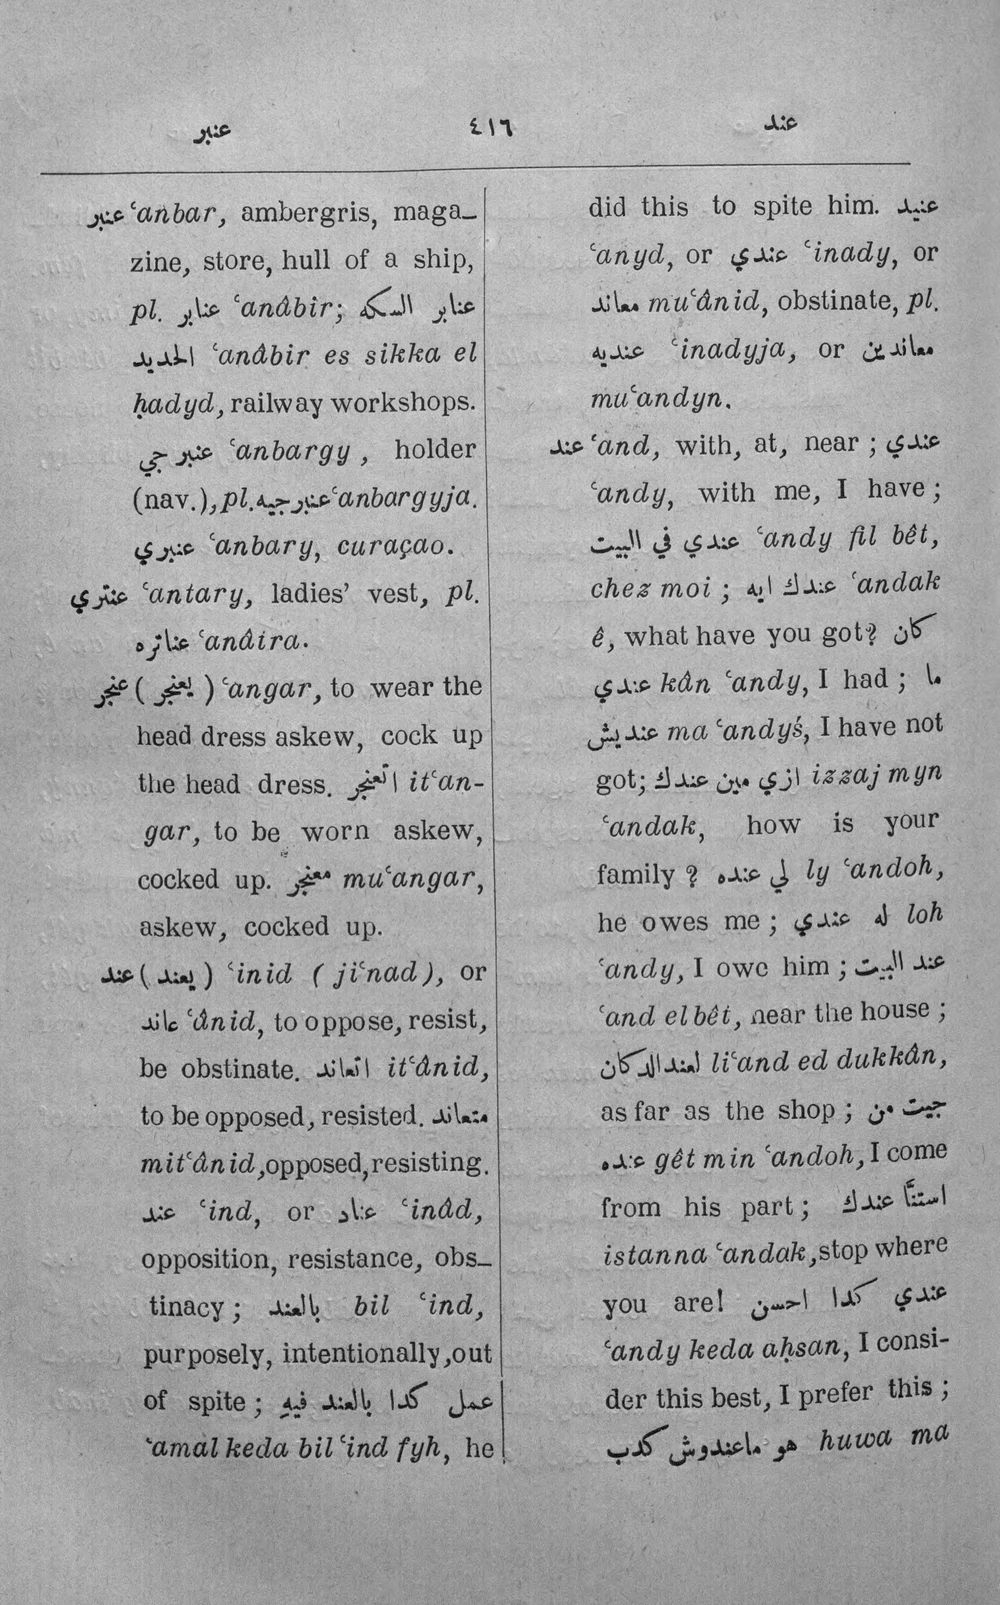 عنبر ٤١٦ عند
عنبر ʿanbar, ambergris, maga-
zine, store, hull of a ship,
pl. عنابر ʿanâbîr; عنابر السكه
الحديد ʿanâbir es sikka el
ḥadyd, railway workshops.
عنبر جي ʿanbargy, holder
(nav.), pl. عنبرجيه ʿanbargyja.
عنبري ʿanbary, curaçao.
عنتري ʿantary, ladies' vest, pl.
عناتره ʿanâtra.
عنجر ( يعنجر ) ʿangar, to wear the
head dress askew, cock up
the head dress. اتعنجر itʿan-
gar, to be worn askew,
cocked up. معنجر muʿangar,
askew, cocked up.
عند ( يعند ) ʿinid ( jiʿnad), or
عاند ʿânid, to oppose, resist,
be obstinate. اتعاند itʿânid,
to be opposed, resisted. متعاند
mitʿânid, opposed, resisting.
عند ʿind, or عناد ʿinâd,
opposition, resistance, obs-
tinacy; بالعند bil ʿind,
purposely, intentionally, out
of spite; عمل كدا بالعند فيه
ʿamal keda bil ʿind fyh, he
did this to spite him. عنيد
ʿanyd, or عندي ʿinady, or
معاند muʿânid, obstinate, pl.
عنديه ʿinadyja, or معاندين
muʿandyn.
عند ʿand, with, at, near; عندي
ʿandy, with me, I have;
عندي في البيت ʿandy fil bêt,
chez moi; عندك ايه ʿandak
ê, what have you got? كان
عندي kân ʿandy, I had; ما
عنديش ma ʿandyś, I have not
got; ازي مين عندك izzaj myn
ʿandak, how is your
family? لي عنده ly ʿandoh,
he owes me; له عندي loh
ʿandy, I owe him; عند البيت
ʿand el bêt, near the house;
لعند الدكان liʿand ed dukkân,
as far as the shop; جيت من
عنده gêt min ʿandoh, I come
from his part; استنّا عندك
istanna ʿandak, stop where
you are! عندي كدا احسن
ʿandy keda aḥsan, I consi-
der this best, I prefer this;
هو ماعندوش كدب huwa ma